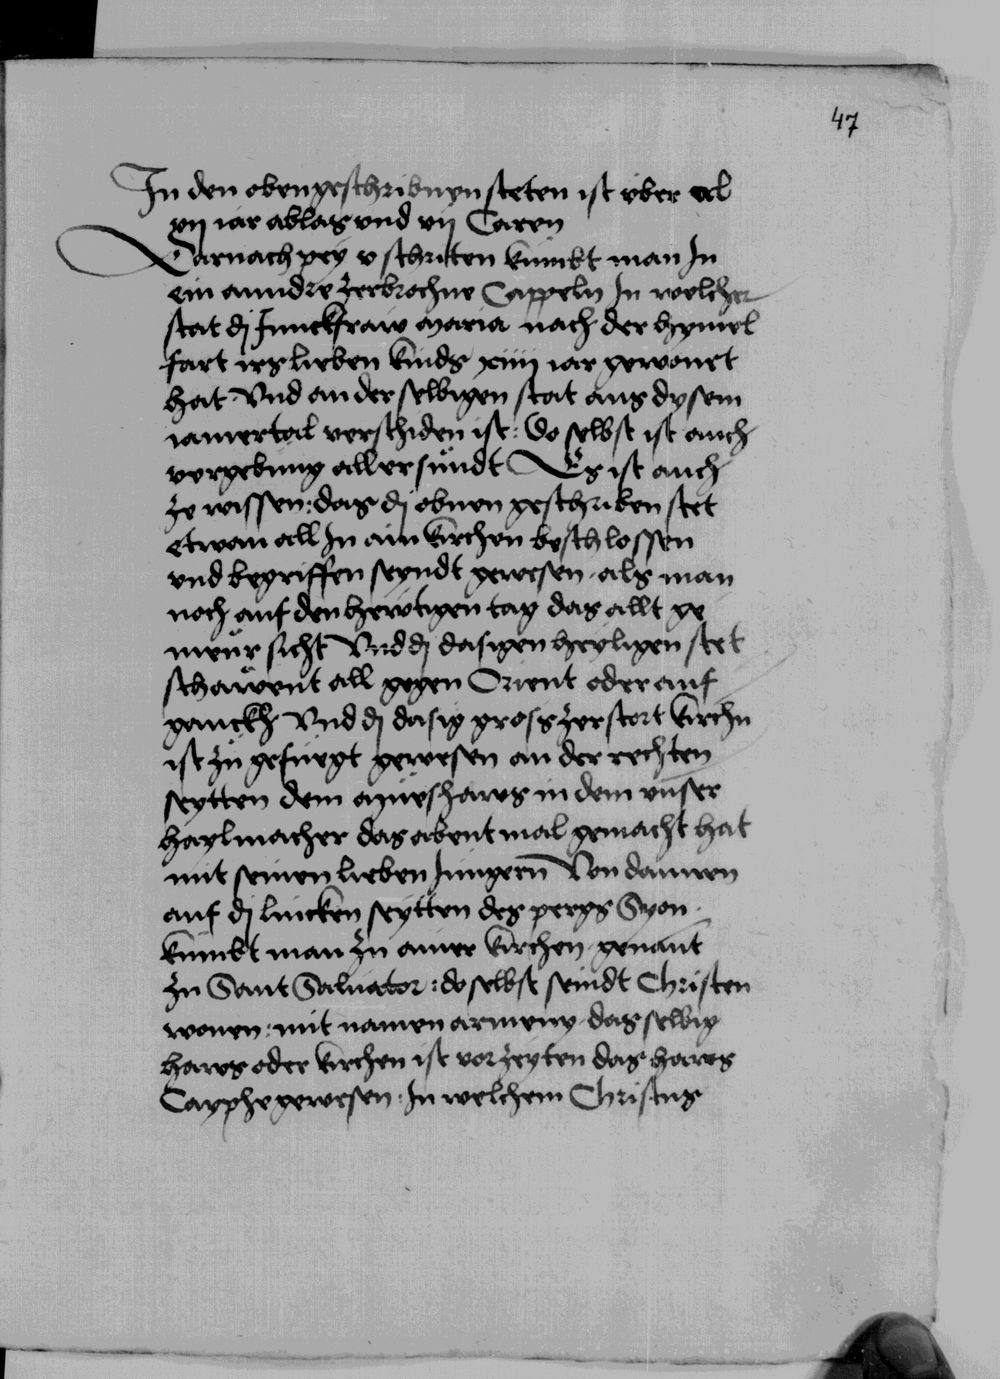 47
In den obengeschribnyn steten ist yber al
vij iar ablas vnd vij Caren
Darnach pey v schritten kumbt man In
ein anndre zerbrochne Cappeln In welcher
stat dj Junckfraw maria nach der hymel
fart irs lieben kinds xiiij iar gewonet
hat Vnd an der selbigen stat aus dysem
iamertal verschiden ist: Do selbst ist auch
vergebung aller sündt Es ist auch
ze wissen: das dj obnen geschriben stet
etwan all In ain kirchen beschlossen
vnd begriffen seyndt gewesen als man
noch auf den hewtigen tag das allt ge
meür sicht Vnd dj dasigen heyligen stet
schawent all gegen Orient oder auf
ganckh Vnd dj dasig gross zerstort kirchn
ist zu gefuegt gewesen an der rechten
seytten dem mueshaws in dem vnser
haylmacher das abentmal gemacht hat
mit seinen lieben Jungern Von dannen
auf dj lincken seytten des pergs Syon
kumbt man zu ainer kirchen genant
zu Sant Saluator: do selbst seindt Christen
wonen: mit namen armeny das selbig
haws oder kirchen ist vor zeyten das haws
Cayphe gewesen In welchem Christus